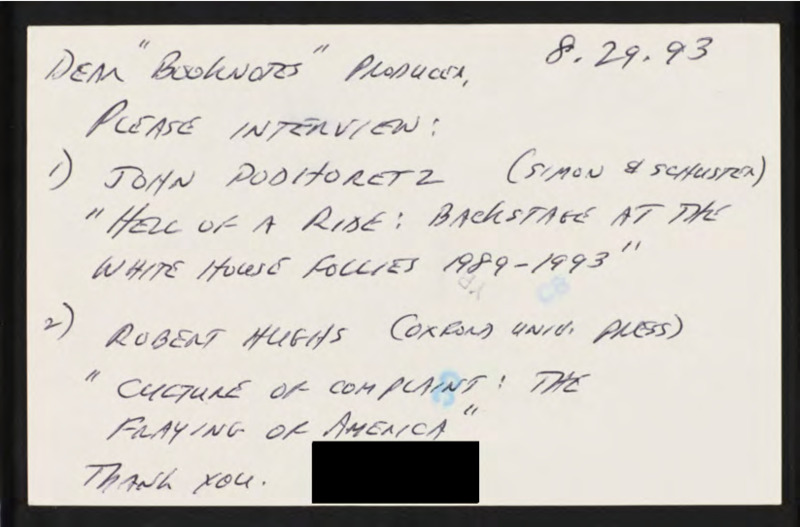 8.29.93
DEAR "BOOKNOTES" PRODUCER,
PLEASE INTERVIEW:
1) JOHN PODHORETZ (SIMON & SCHUSTER)
"HELL OF A RIDE: BACKSTAGE AT THE
WHITE HOUSE FOLLIES 1989-1993"
2) ROBERT HUGHS (OXFORD UNIV. PRESS)
"CULTURE OF COMPLAINT: THE
FRAYING OF AMERICA"
THANK YOU.